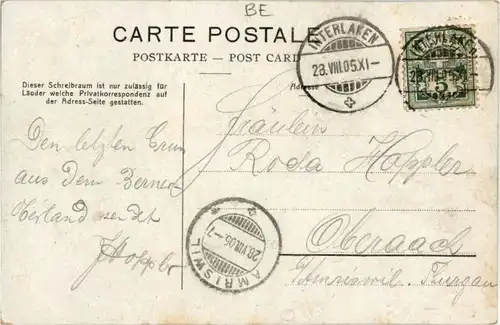 BE
CARTE POSTALE
POSTKARTE — POST CARD
Adresse
INTERLAKEN
28.VIII.05.XI-
INTERLAKEN
28.VIII.05.XI-
5
Dieser Schreibraum ist nur zulässig für
Länder welche Privatkorrespondenz auf
der Adress-Seite gestatten.
Den letzten Gruss
aus dem Berner
Oberland sendet
J Hoppler
Fräulein
Roda Hoppler
Oberaach
Amriswil. Thurgau
AMRISWIL
28.VIII.05.-7